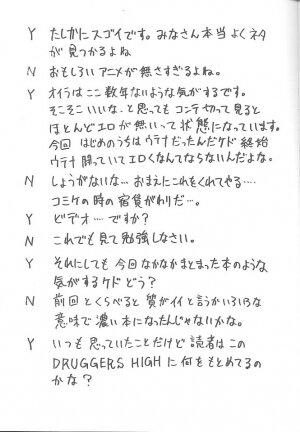 Y たしかにスゴイです。みなさん本当よくネタ
が見つかるよね
N おもしろいアニメが無さすぎるよね。
Y オイラはここ数年ないような気がするです。
そこそこいいな、と思ってもコンテ切って見ると
ほとんどエロが無いって状態になっています。
今回はじめのうちはウテナだったんだケド終始
ウテナ闘っていてエロくなんてならないんだよな。
N しょうがないな…おまえにこれをくれてやる…
コミケの時の宿賃がわりだ…。
Y ビデオ…ですか？
N これでも見て勉強しなさい。
Y それにしても今回なかなかまとまった本のような
気がするケドどう？
N 前回とくらべると質がイイと言うかいろいろな
意味で濃い本になったんじゃないかな。
Y いつも思っていたことだけど読者はこの
DRUGGERS HIGHに何をもとめてるの
かな？